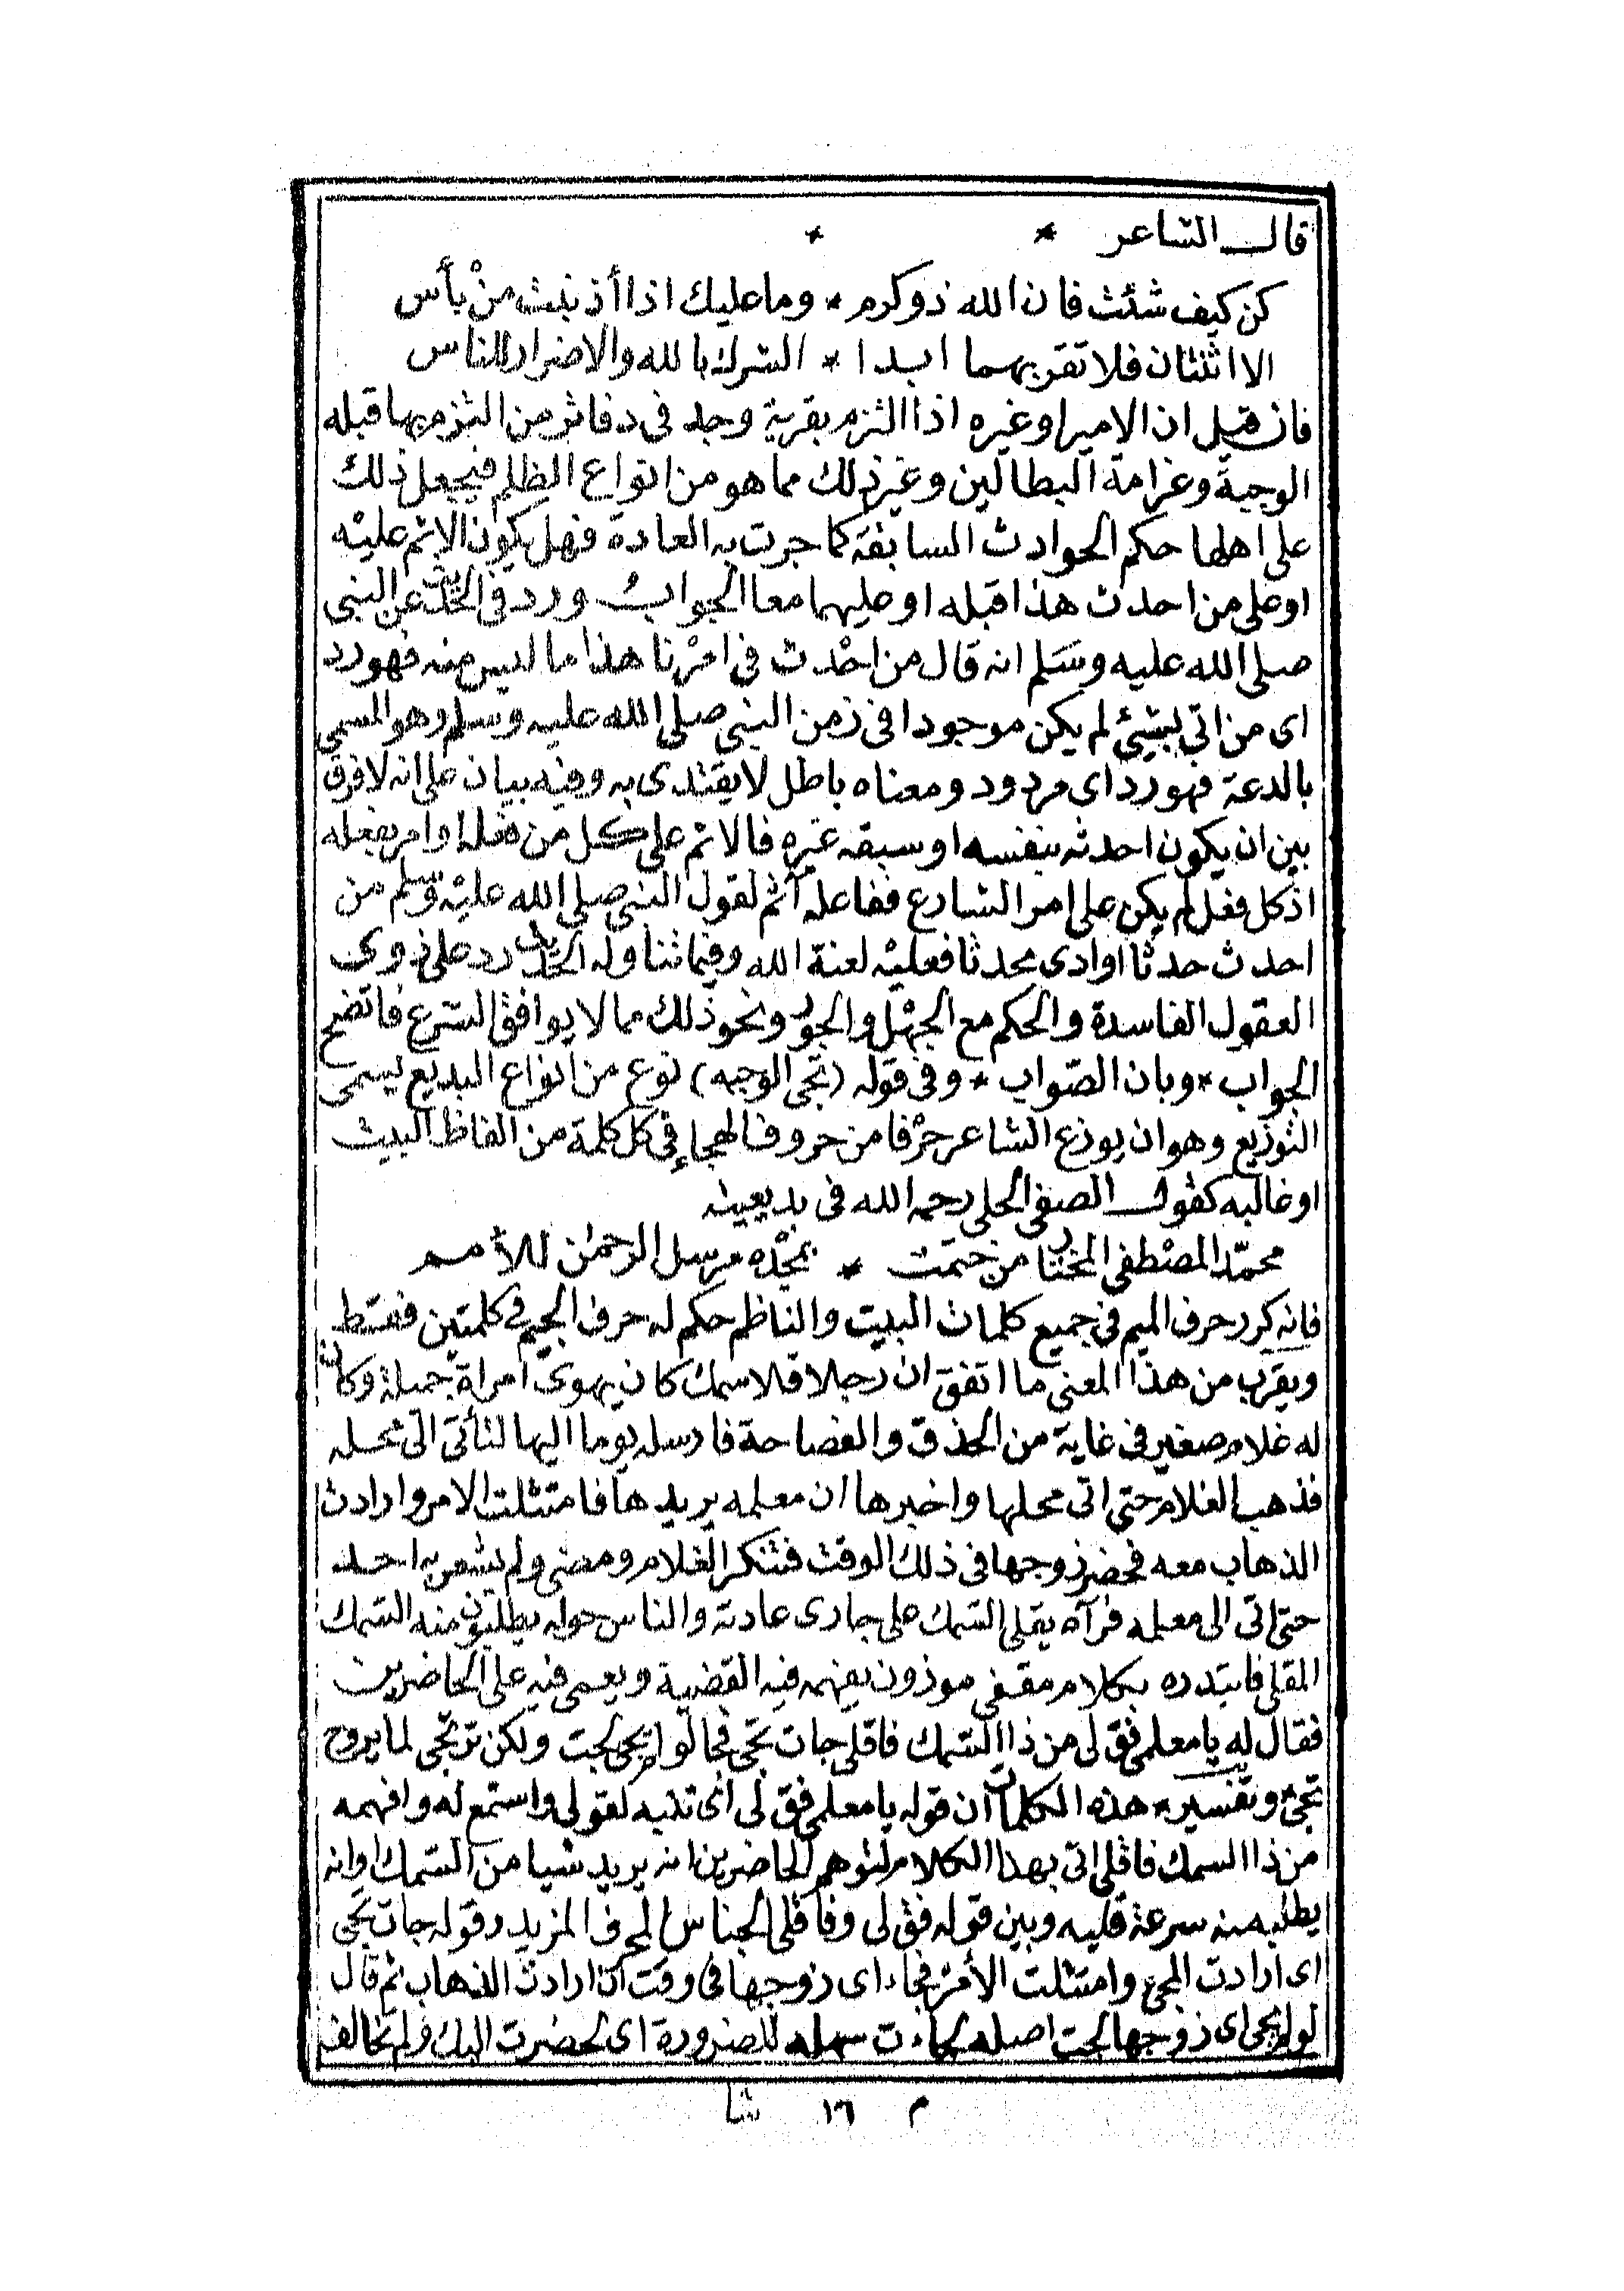 قال الشاعر * *
كن كيف شئت فان الله ذو كرم * وما عليك اذا أذنبت منْ بأس
الا اثنتان فلا تقربهما ابدا * الشرك بالله والاضرار للناس
فان قيل ان الامير او غيره اذا التزم بقرية وجد في دفاتر من التزم بها قبله
الوجبة وغرامة البطالين وغير ذلك مما هو من انواع الظلم فيجعل ذلك
على اهلها حكم الحوادث السابقة كما جرت به العادة فهل يكون الاثم عليْه
او على من احدث هذا قبله او عليهما معا الجواب ورد في الحديث عن النبي
صلى الله عليه وسَلم انه قال من احْدث في امْرنا هذا ما ليس منه فهو رد
اى من اتي بشئ لم يكن موجودا في زمن النبي صلى الله عليه وسلم وهو المسمى
بالدعة فهو رد اى مردود ومعناه باطل لا يقتدى به وفيه بيان على انه لا فرق
بين ان يكون احدثه بنفسه او سبقه غيره فالاثم على كل من فعله او امر بفعله
اذ كل فعل لم يكن على امر الشارع ففاعله آثم لقول النبي صلى الله عليْه وسلم من
احدث حدثا او ادى محدثا فعليْه لعنة الله وفيما تناوله الحديث رد على ذوى
العقول الفاسدة والحكم مع الجهْل والجوْر ونحو ذلك مما لا يوافق الشرع فاتضح
الجواب * وبان الصّواب * وفي قوله (تجى الوجبه) نوع من انواع البديع يسمى
التوزيع وهو ان يوزع الشاعر حرْفا من حروف الهجاء في كل كلمة من الفاظ البيت
او غالبه كقول الصفي الحلي رحمه الله في بديعيته
محمّد المصْطفى المختار من ختمت * بمجْده مرسل الرحمن للأمم
فانه كرر حرف الميم في جميع كلمات البيت والناظم حكم له حرف الجيم في كلمتين فقط
ويقرب من هذا المعنى ما اتفق ان رجلا قلا سمك كان يهوى امراة جميلة وكان
له غلام صغير في غاية من الحذق والفصاحة فارسله يوما اليها لتأتى الى محله
فذهب الغلام حتى اتى محلها واخبرها ان معلمه يريدها فامتثلت الامر وارادت
الذهاب معه فحضر زوجها في ذلك الوقت فتنكر الغلام ومضى ولم يشعر به احد
حتى اتى الى معلمه فرآه يقلى السّمك على جارى عادته والناس حوله يطلبون منه السّمك
المقلى فابتدره بكلام مقفى موزون يفهمه فيه القضية ويعمى فيه على الحاضرين
فقال له يا معلمى فق لى من ذا السّمك فاقلى جات تجى فجا لو لم يجى لجت ولكن ترتجى لما يروح
تجى وتفسير هذه الكلمات ان قوله يا معلمى فق لى اى تنبه لقولى واستمع له وافهمه
من ذا السمك فاقلى اتى بهذا الكلام ليوهم الحاضرين انه يريد شيا من السّمك او انه
يطلب منه سرعة قليه وبين قوله فق لى وفاقلى الجناس المحرف المزيد وقوله جات تجى
اى ارادت المجئ وامتثلت الأمْر فجاء اى زوجها في وقت ان ارادت الذهاب ثم قال
لو لم يجى اى زوجها لجت اصله لجاءت سهله للضرورة اى لحضرت اليك ولم تخالف
م ١٦ شا